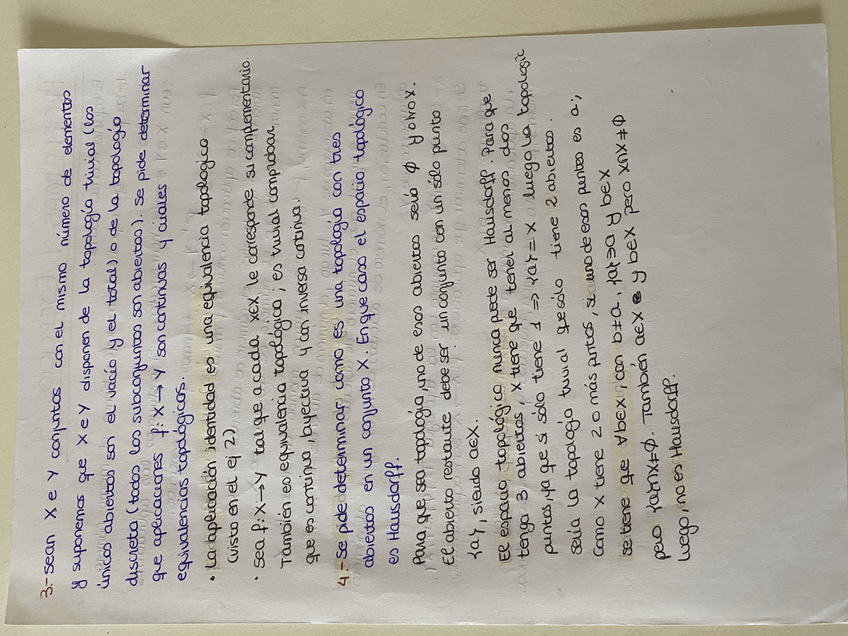 3.- Sean X e Y conjuntos con el mismo número de elementos
y suponemos que X e Y disponen de la topología trivial (los
únicos abiertos son el vacío y el total) o de la topología
discreta (todos los subconjuntos son abiertos). Se pide determinar
que aplicaciones f: X → Y son continuas y cuales
equivalencias topológicas.
• La aplicación identidad es una equivalencia topologica
(visto en el ej 2)
• Sea f: X → Y tal que a cada x∈X le corresponde su complementario.
También es equivalencia topológica; es trivial comprobar
que es continua, biyectiva y con inversa continua.
4.- Se pide determinar como es una topología con tres
abiertos en un conjunto X. En que caso el espacio topológico
es Hausdorff.
Para que sea topología, uno de esos abiertos será ∅ y otro X.
El abierto restante debe ser un conjunto con un sólo punto
{a}, siendo a∈X.
El espacio topológico nunca puede ser Hausdorff. Para que
tenga 3 abiertos, X tiene que tener al menos dos
puntos, ya que si sólo tiene 1 ⇒ {a} = X luego la topologia
sería la topología trivial que sólo tiene 2 abiertos.
Como X tiene 2 o más puntos, si uno de esos puntos es a;
se tiene que ∀b∈X; con b≠a, {a}∋a y b∈X
pero {a}∩X≠∅. También a∈X y b∈X pero X∩X≠∅
Luego, no es Hausdorff.